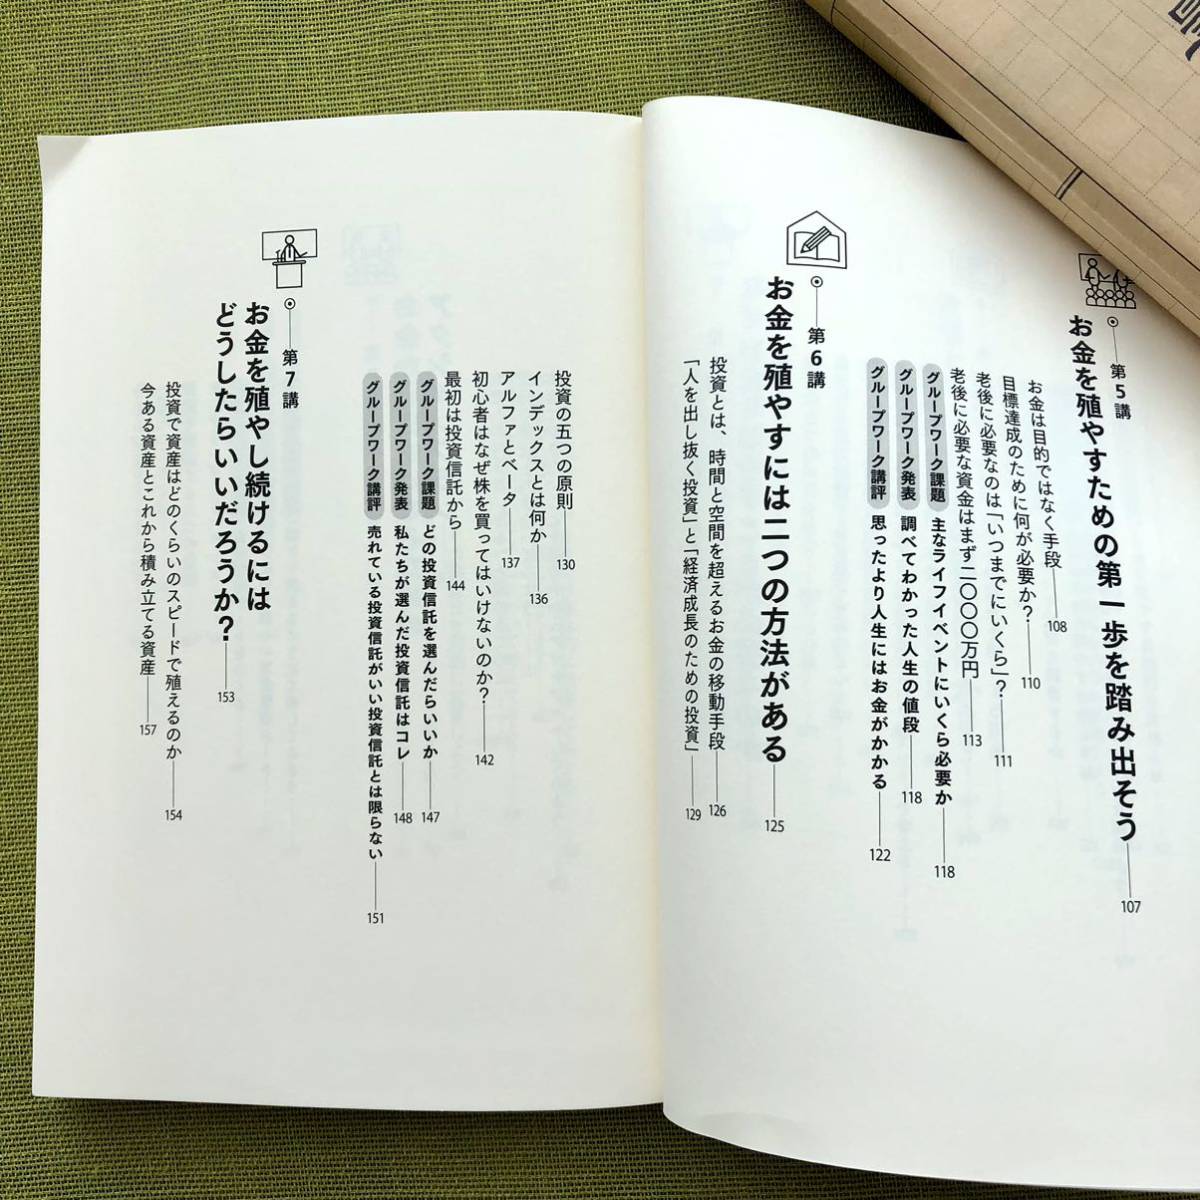 第5講
お金を殖やすための第一歩を踏み出そう 107
お金は目的ではなく手段 108
目標達成のために何が必要か? 110
老後に必要なのは「いつまでにいくら」? 111
老後に必要な資金はまず二〇〇〇万円 113
グループワーク課題 主なライフイベントにいくら必要か 118
グループワーク発表 調べてわかった人生の値段 118
グループワーク講評 思ったより人生にはお金がかかる 122
第6講
お金を殖やすには二つの方法がある 125
投資とは、時間と空間を超えるお金の移動手段 126
「人を出し抜く投資」と「経済成長のための投資」 129
投資の五つの原則 130
インデックスとは何か 136
アルファとベータ 137
初心者はなぜ株を買ってはいけないのか? 142
最初は投資信託から 144
グループワーク課題 どの投資信託を選んだらいいか 147
グループワーク発表 私たちが選んだ投資信託はコレ 148
グループワーク講評 売れている投資信託がいい投資信託とは限らない 151
第7講
お金を殖やし続けるには
どうしたらいいだろうか? 153
投資で資産はどのくらいのスピードで殖えるのか 154
今ある資産とこれから積み立てる資産 157